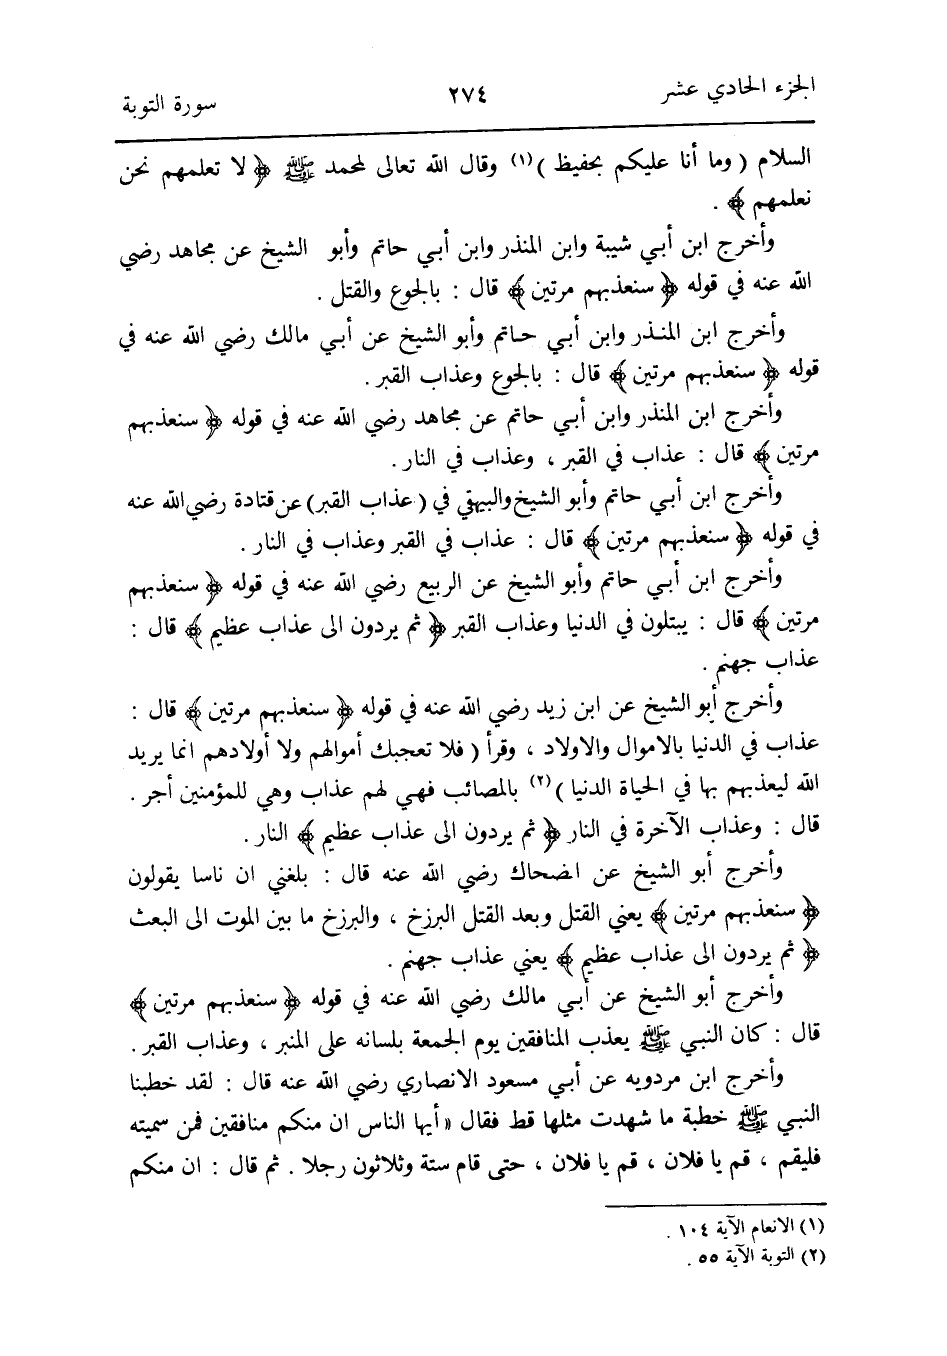 الجزء الحادي عشر
٢٧٤
سورة التوبة
السلام ( وما أنا عليكم بحفيظ )(١) وقال الله تعالى لمحمد ﷺ ﴿ لا تعلمهم نحن
نعلمهم ﴾ .
وأخرج ابن أبي شيبة وابن المنذر وابن أبي حاتم وأبو الشيخ عن مجاهد رضي
الله عنه في قوله ﴿ سنعذبهم مرتين ﴾ قال : بالجوع والقتل .
وأخرج ابن المنذر وابن أبي حاتم وأبو الشيخ عن أبي مالك رضي الله عنه في
قوله ﴿ سنعذبهم مرتين ﴾ قال : بالجوع وعذاب القبر .
وأخرج ابن المنذر وابن أبي حاتم عن مجاهد رضي الله عنه في قوله ﴿ سنعذبهم
مرتين ﴾ قال : عذاب في القبر ، وعذاب في النار .
وأخرج ابن أبي حاتم وأبو الشيخ والبيهقي في ( عذاب القبر ) عن قتادة رضي الله عنه
في قوله ﴿ سنعذبهم مرتين ﴾ قال : عذاب في القبر وعذاب في النار .
وأخرج ابن أبي حاتم وأبو الشيخ عن الربيع رضي الله عنه في قوله ﴿ سنعذبهم
مرتين ﴾ قال : يبتلون في الدنيا وعذاب القبر ﴿ ثم يردون الى عذاب عظيم ﴾ قال :
عذاب جهنم .
وأخرج أبو الشيخ عن ابن زيد رضي الله عنه في قوله ﴿ سنعذبهم مرتين ﴾ قال :
عذاب في الدنيا بالاموال والاولاد ، وقرأ ( فلا تعجبك أموالهم ولا أولادهم انما يريد
الله ليعذبهم بها في الحياة الدنيا )(٢) بالمصائب فهي لهم عذاب وهي للمؤمنين أجر .
قال : وعذاب الآخرة في النار ﴿ ثم يردون الى عذاب عظيم ﴾ النار .
وأخرج أبو الشيخ عن الضحاك رضي الله عنه قال : بلغني ان ناسا يقولون
﴿ سنعذبهم مرتين ﴾ يعني القتل وبعد القتل البرزخ ، والبرزخ ما بين الموت الى البعث
﴿ ثم يردون الى عذاب عظيم ﴾ يعني عذاب جهنم .
وأخرج أبو الشيخ عن أبي مالك رضي الله عنه في قوله ﴿ سنعذبهم مرتين ﴾
قال : كان النبي ﷺ يعذب المنافقين يوم الجمعة بلسانه على المنبر ، وعذاب القبر .
وأخرج ابن مردويه عن أبي مسعود الانصاري رضي الله عنه قال : لقد خطبنا
النبي ﷺ خطبة ما شهدت مثلها قط فقال « أيها الناس ان منكم منافقين فمن سميته
فليقم ، قم يا فلان ، قم يا فلان ، حتى قام ستة وثلاثون رجلا . ثم قال : ان منكم
(١) الانعام الآية ١٠٤ .
(٢) التوبة الآية ٥٥ .